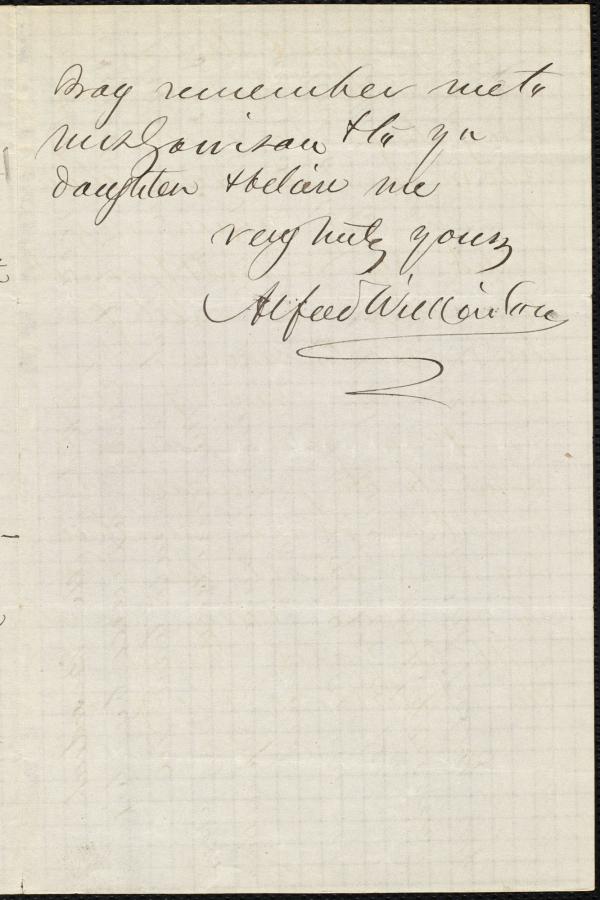 Pray remember me to
Mrs Garrison & to yr
daughter & believe me
very truly yours
Alfred Wilkinson